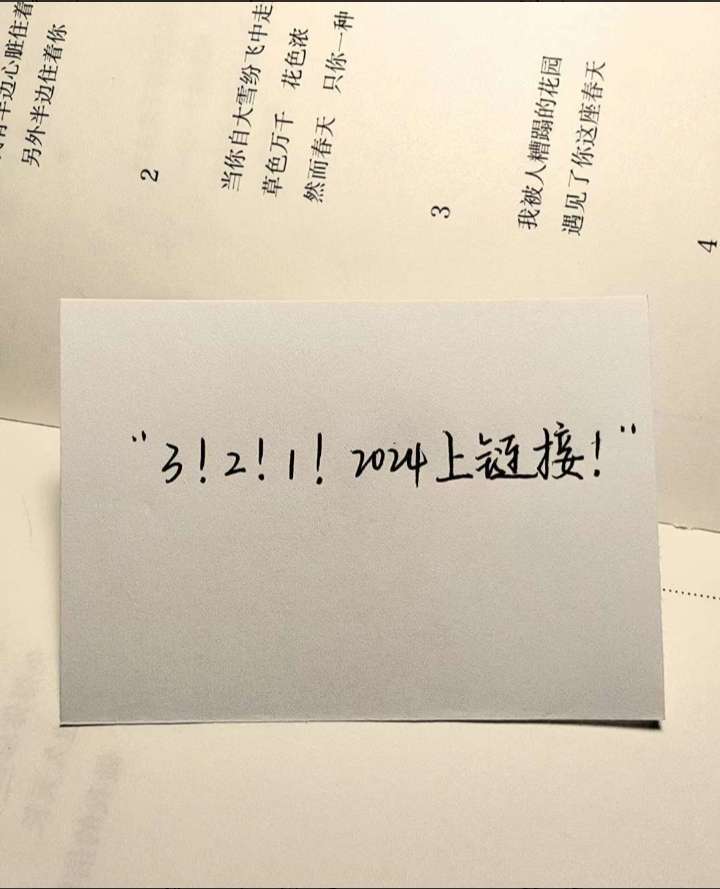 有半边心脏住着
另外半边住着你
2
当你自大雪纷飞中走
草色万千 花色浓
然而春天 只你一种
3
我被人糟蹋的花园
遇见了你这座春天
4
"3！2！1！2024上链接！"